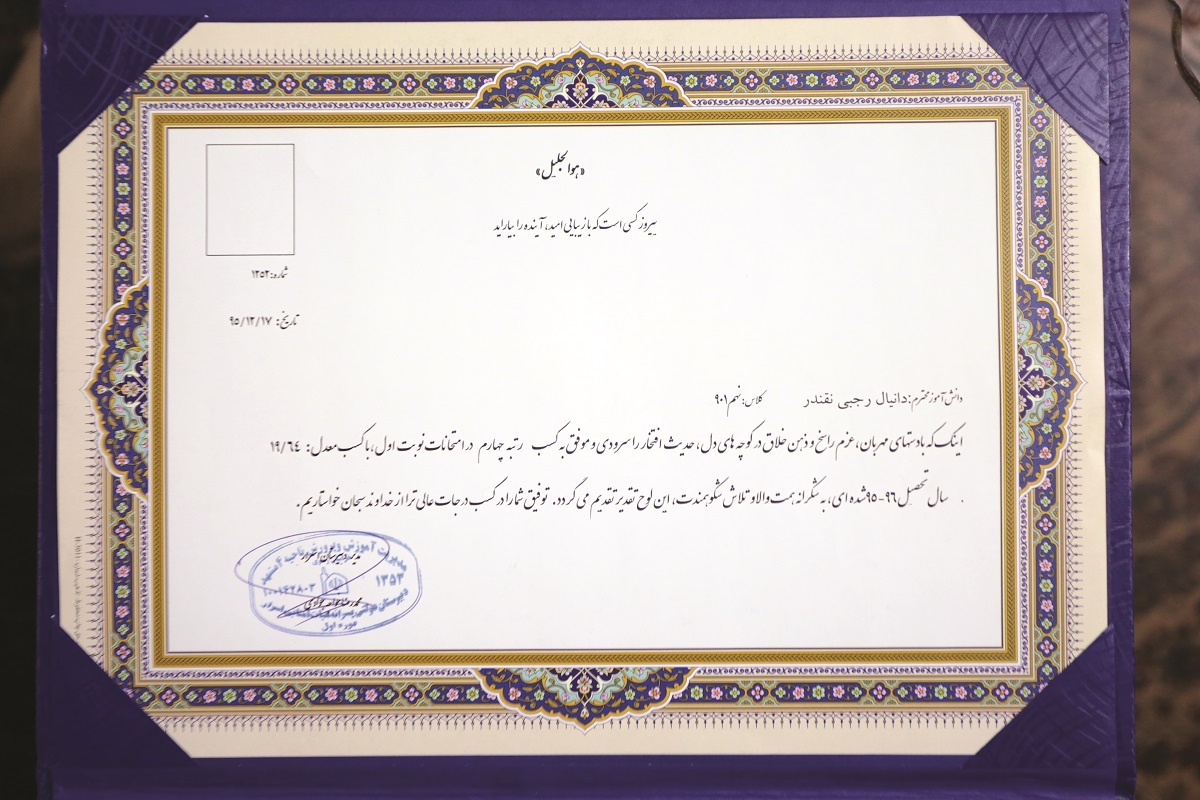 «هوالجلیل»
پیروز کسی است که با زیبایی امید، آینده را بیاراید
شماره: ۱۳۵۲
تاریخ: ۹۵/۱۲/۱۷
دانش آموز محترم: دانیال رجبی نقندر کلاس: نهم ۹۰۱
اینک که با دستهای مهربان، عزم راسخ و ذهن خلاق در کوچه های دل، حدیث افتخار را سرودی و موفق به کسب رتبه چهارم در امتحانات نوبت اول، با کسب معدل: ۱۹/۶۴
سال تحصیلی ۹۶-۹۵ شده ای، به شکرانه همت والا و تلاش شکوهمندت، این لوح تقدیر تقدیم می گردد. توفیق شما را در کسب درجات عالی تر از خداوند سبحان خواستاریم.
مدیریت آموزش و پرورش ناحیه ۴ مشهد
مدیر دبیرستان
۱۳۵۳
۱۰۰۱۶۲۸۰۳
دوره اول